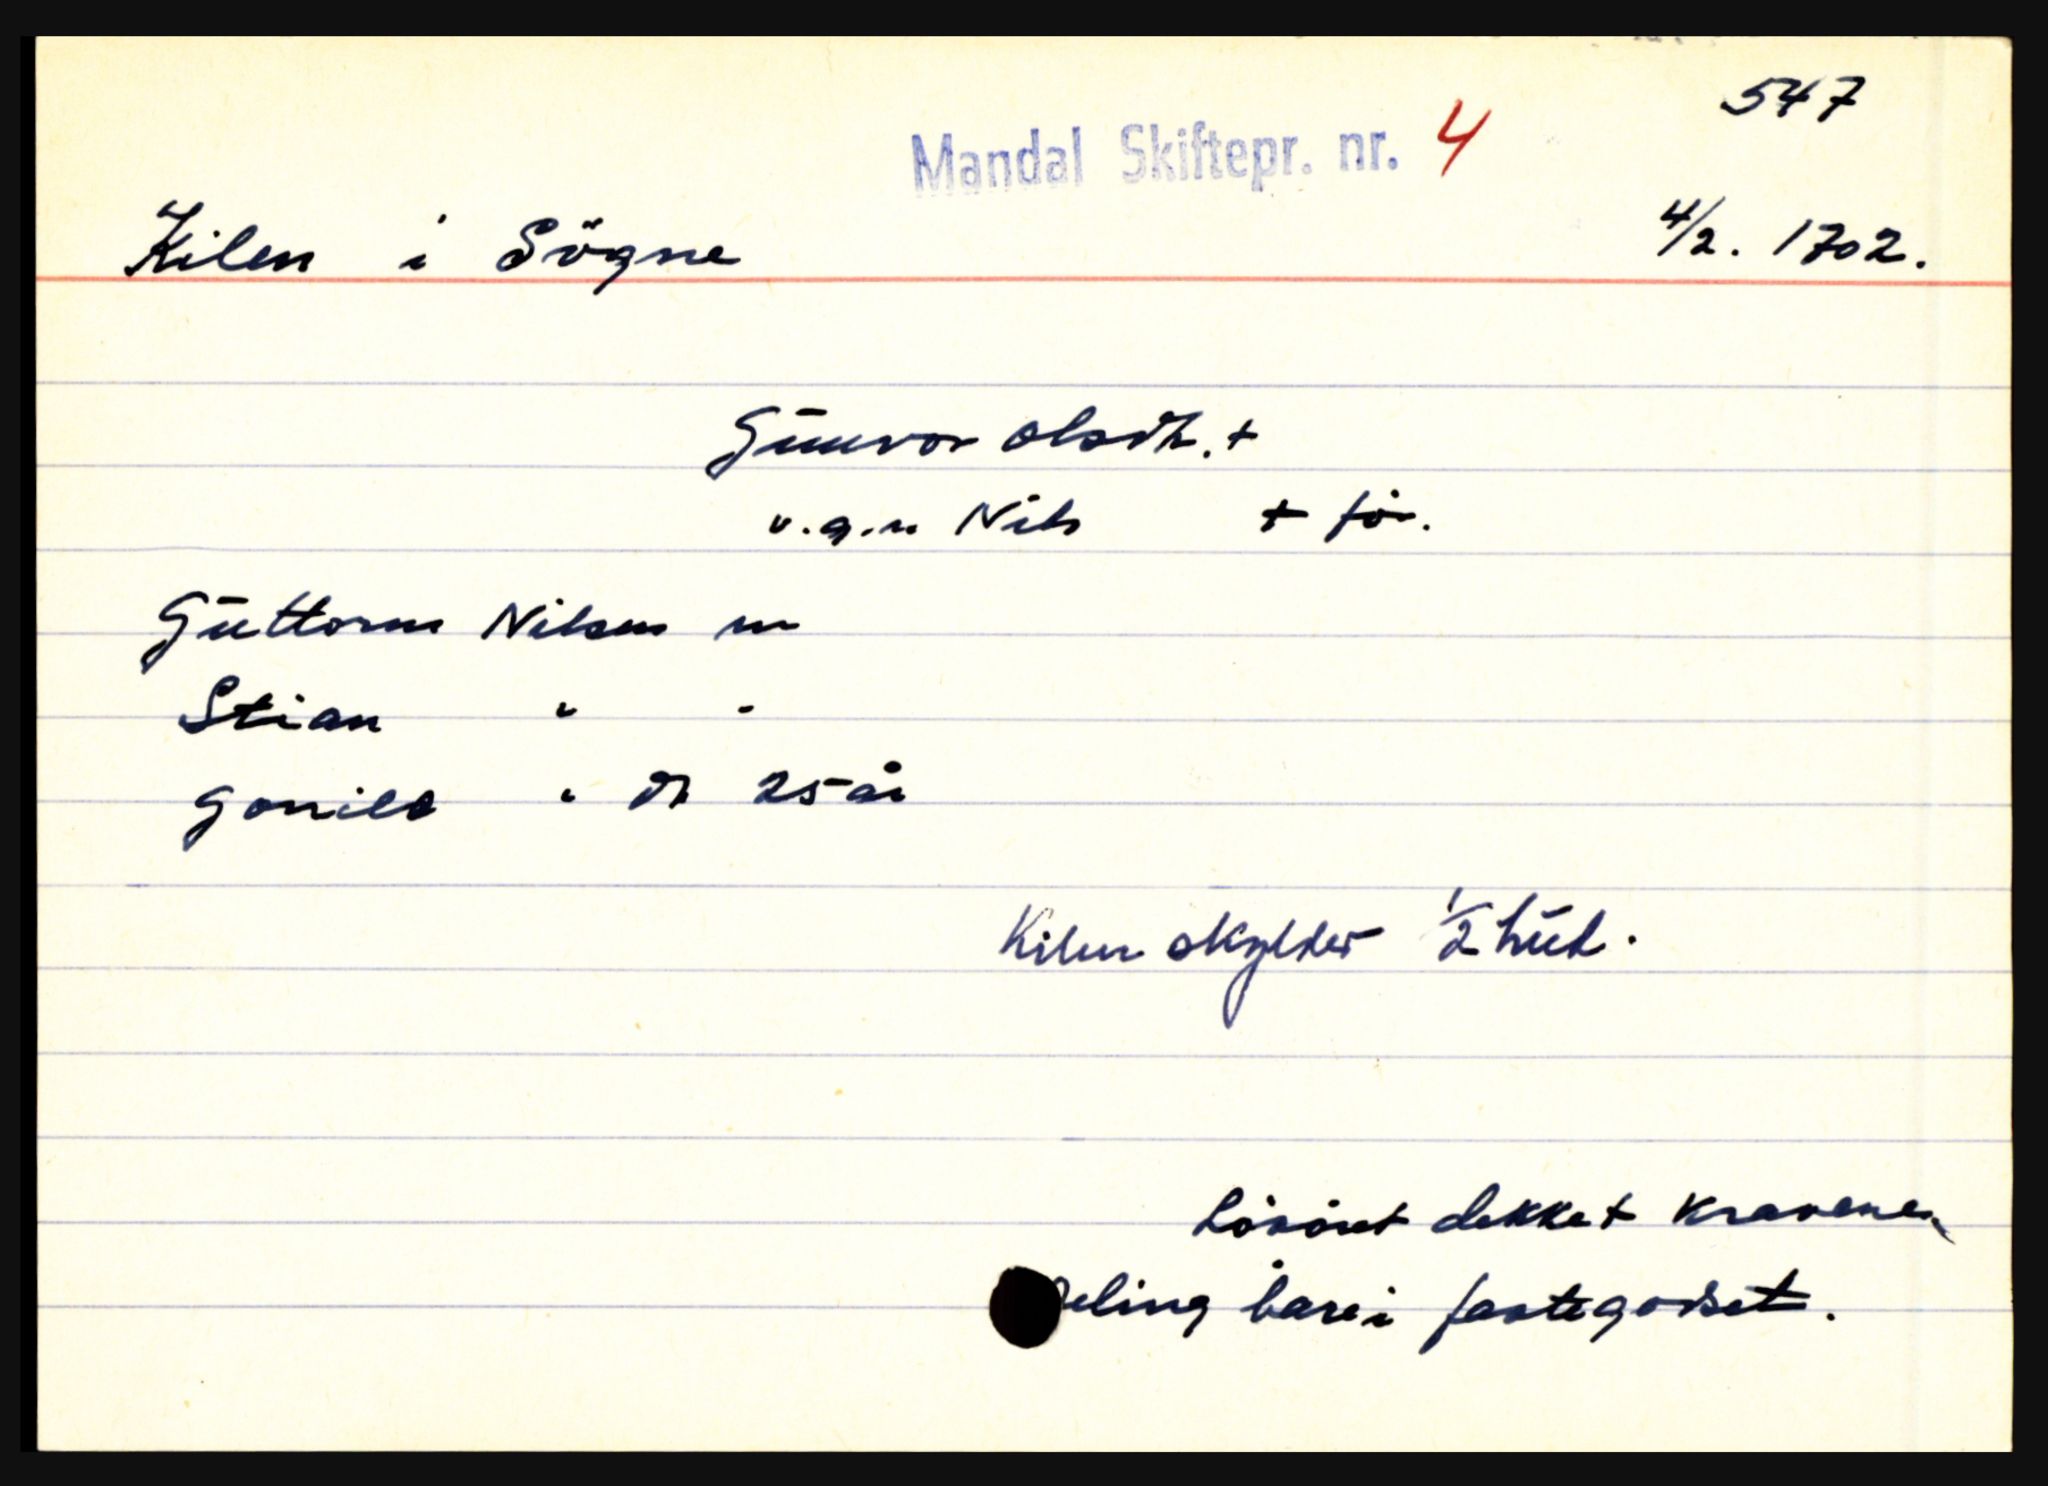 547
Mandal Skiftepr. nr. 4
Kilen i Sögne 4/2. 1702.
Gunvor Olsdtr. +
v.g.m Nils + för.
Guttorm Nilsen m
Stian " -
Gonild " dtr 25 år
Kilen skylder 1/2 hud.
Lösöret dekket kravene.
Deling bare i fastegodset.